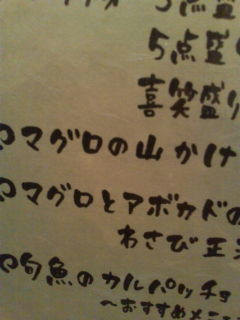 5点盛
5点盛
喜笑盛り
マグロの山かけ
マグロとアボカドの
わさび
旬魚のカルパッチョ
〜おすすめメニュー